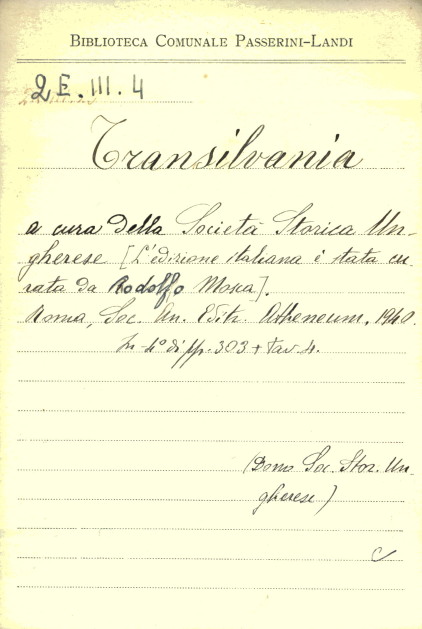 BIBLIOTECA COMUNALE PASSERINI-LANDI
2E.III.4
Transilvania
a cura della Società Storica Un-
gherese [L'edizione italiana è stata cu-
rata da Rodolfo Mosca].
Roma, Soc. An. Editr. Atheneum, 1940.
In-4° di pp. 303 + tav. 4.
(Dono Soc. Stor. Un-
gherese)